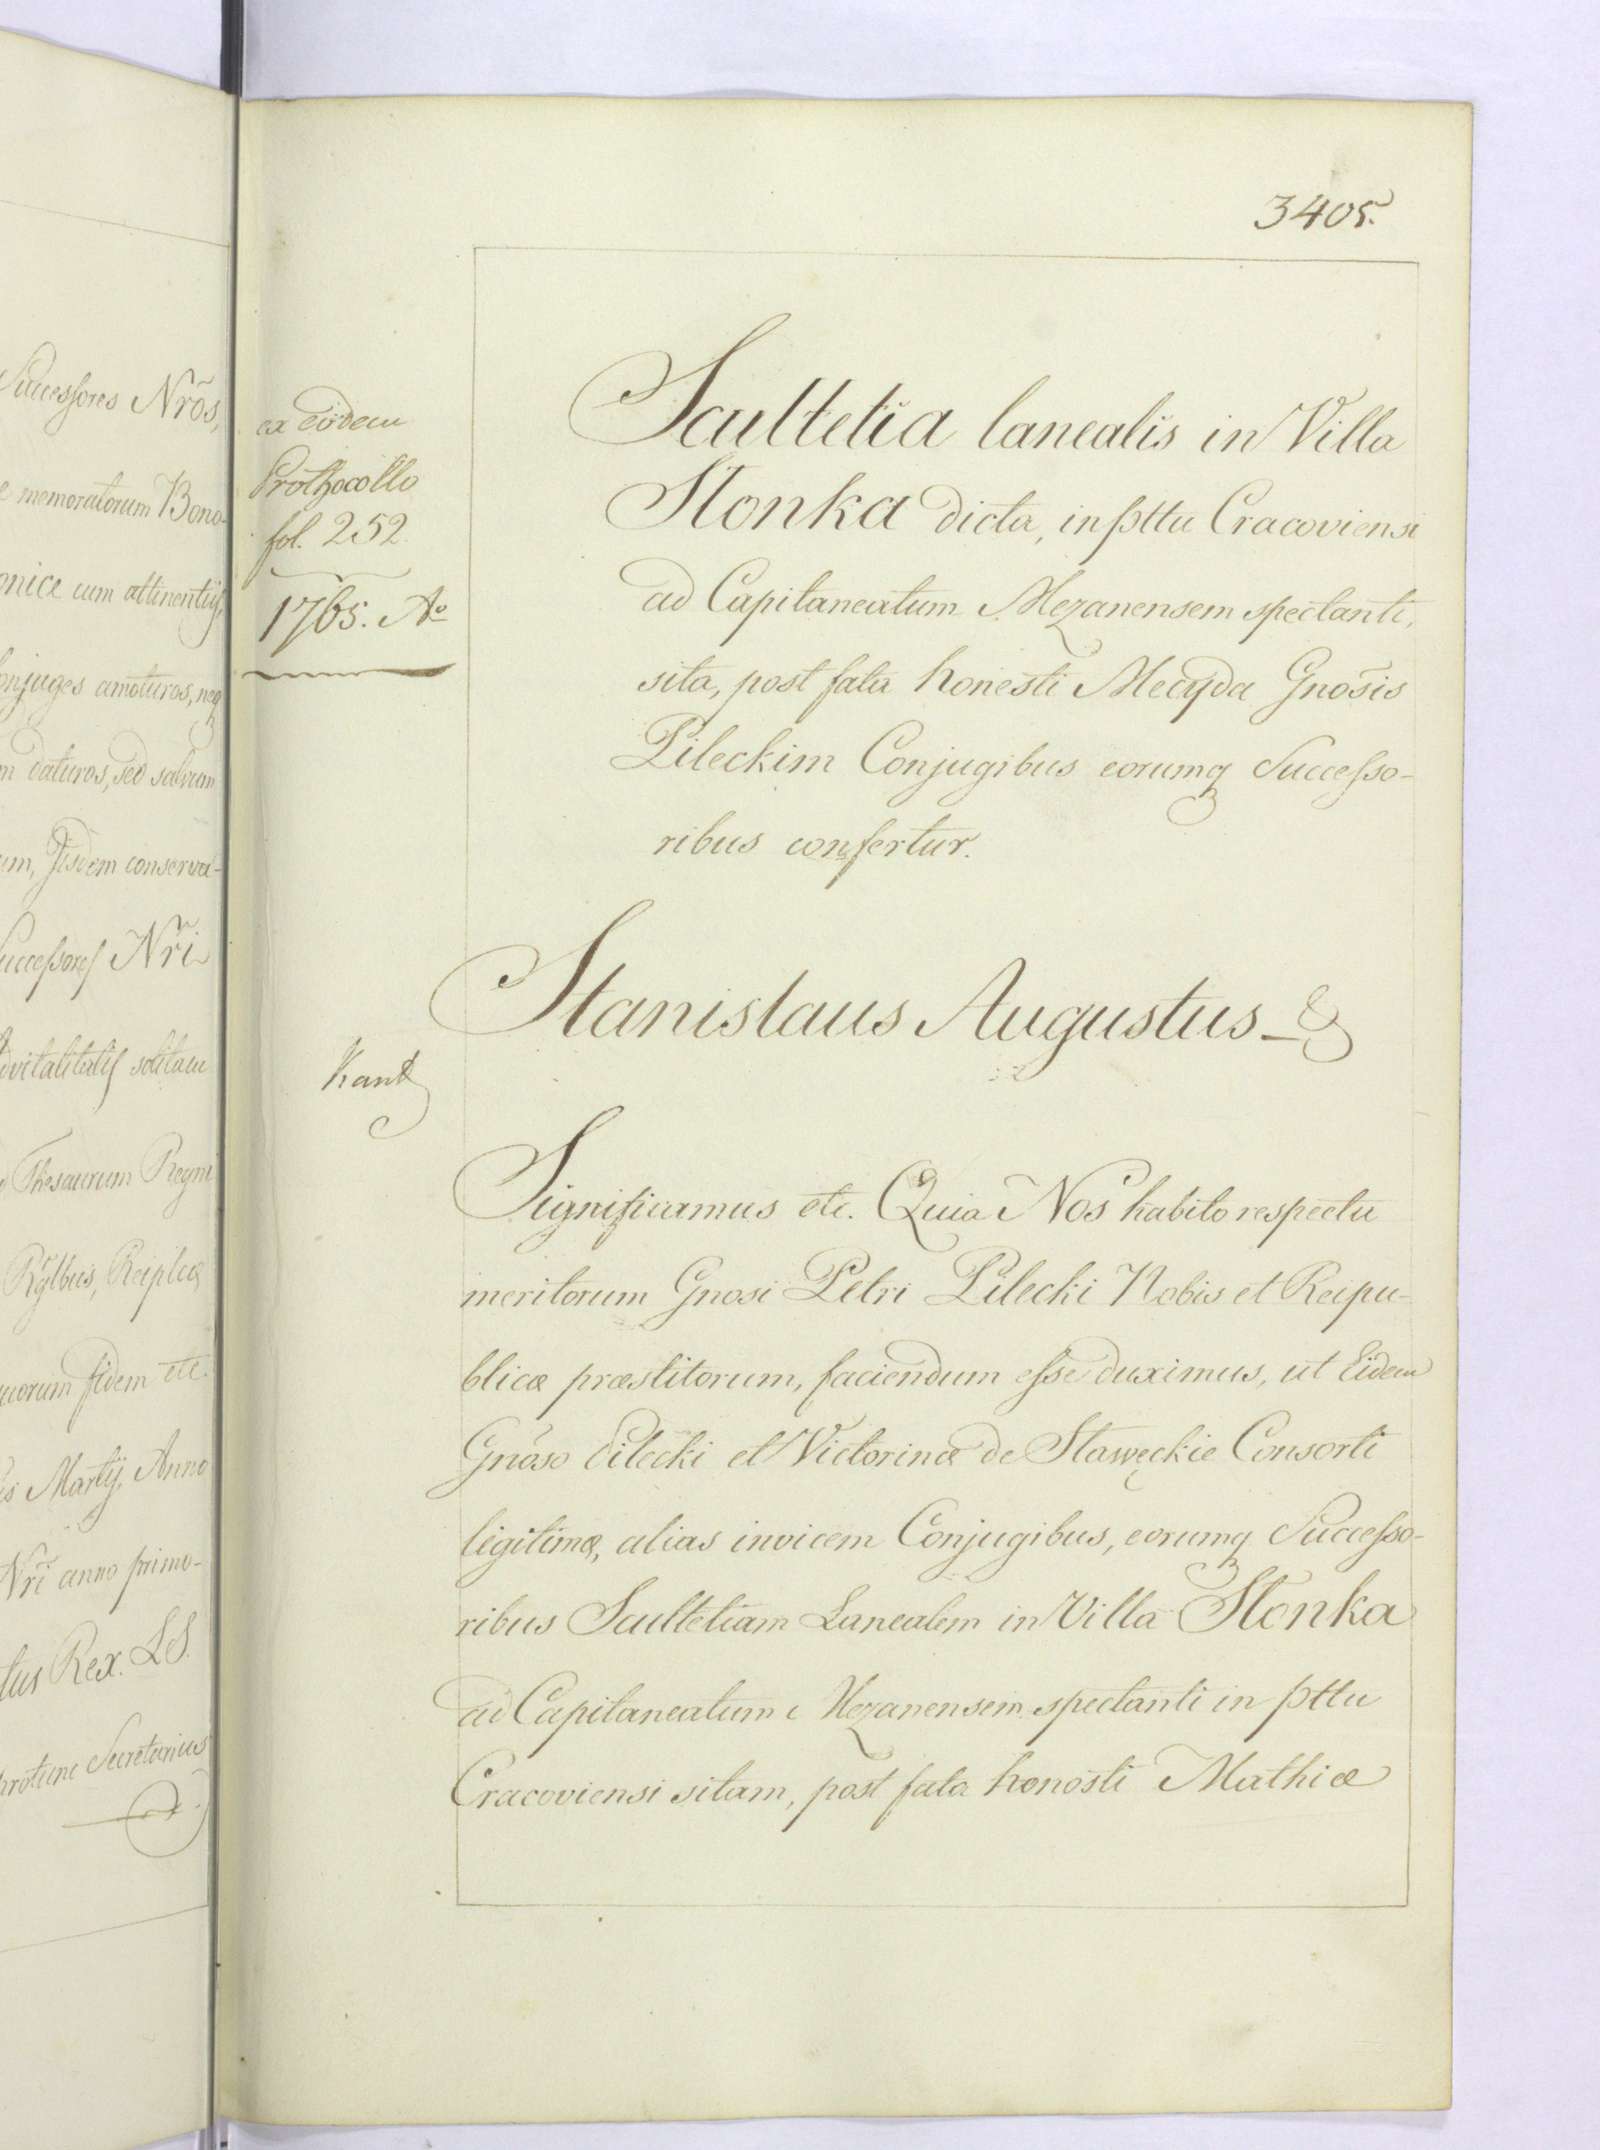 Successores Nrõs,
memoratorum Bono-
cum attinentijs,
amoturos, neq
daturos, sed salvum
Jisdem conserva-
Successores Nrĩ
solitam
Thesaurum Regni
Rgłbus, Reiplcæ
fidem etc.
Martij, Anno
Nrĩ anno primo-
Rex. LS.
Secretarius
3405.
ex eodem
Prothocollo
fol. 252.
1765. Aº
Scultetia lanealis in Villa
Słonka dicta, in pttu Cracoviensi
ad Capitaneatum Mezanensem spectanti,
sita, post fata honesti Mecyda Gnosis
Pileckim Conjugibus eorumq Successo-
ribus confertur.
Stanislaus Augustus - &
Kant
Significamus etc. Quia Nos habito respectu
meritorum Gnosi Petri Pilecki Nobis et Reipu-
blicæ præstitorum, faciendum esse duximus, ut Eidem
Gnoso Pilecki et Victorinæ de Stawęckie Consorti
legitimæ, alias invicem Conjugibus, eorumq Successo-
ribus Scultetiam Lanealem in Villa Słonka
ad Capitaneatum Mezanensem spectanti in pttu
Cracoviensi sitam, post fata honosti Mathiæ